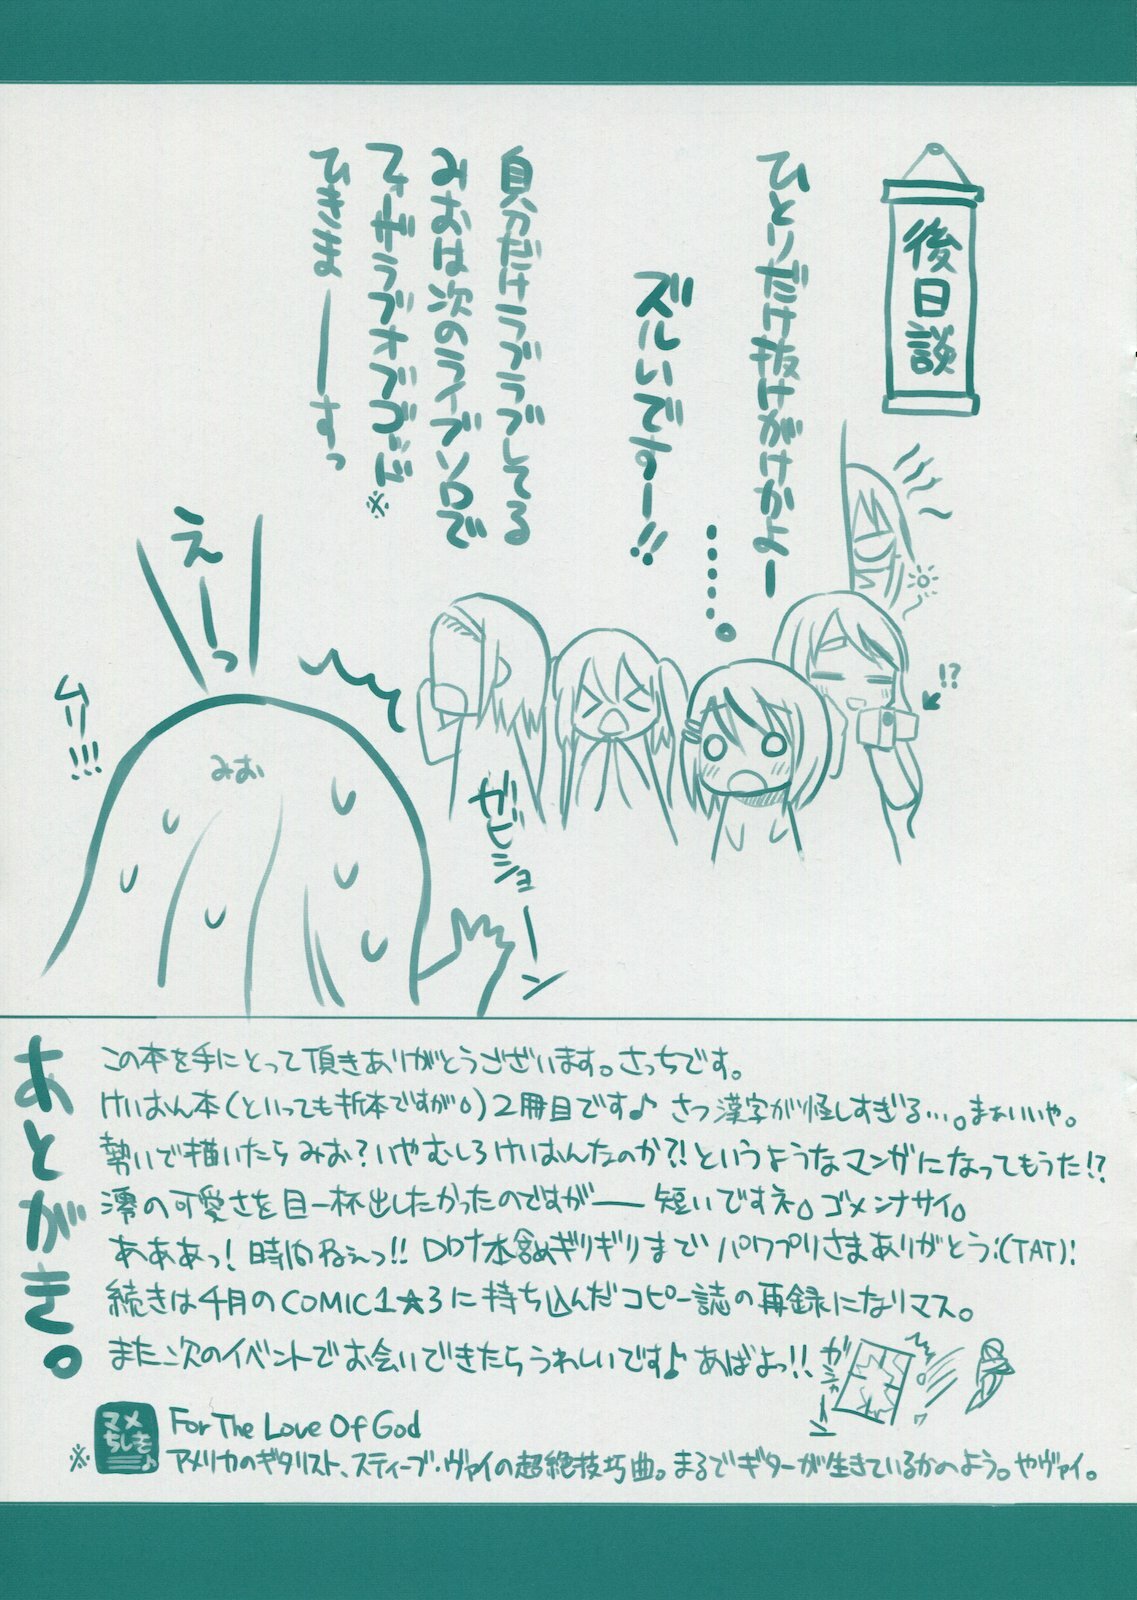 後日談
ひとりだけ抜けがけかよー
……。
ズルいですー!!
自分だけラブラブしてる
みおは次のライブソロで
フォーザラブオブゴッド※
ひきまーーーすっ
!?
えーっ
ムリ!!!
みお
ガビショーン
あとがき。
この本を手にとって頂きありがとうございます。さっちです。
けいおん本(といっても折本ですが。)2冊目です♪ さっ漢字が怪しすぎる…。まぁいいや。
勢いで描いたらみお?いやむしろけいおんなのか?!というようなマンガになってもうた!?
澪の可愛さを目一杯出したかったのですが── 短いですネ。ゴメンナサイ。
あああっ! 時間ねぇっ!! ギリギリまで パワプリさまありがとう:(TAT):
続きは4月のCOMIC1☆3に持ち込んだコピー誌の再録になりマス。
また次のイベントでお会いできたらうれしいです♪ あばよっ!!
ガシャーン
マメちしき♪
For The Love Of God
※アメリカのギタリスト、スティーブ・ヴァイの超絶技巧曲。まるでギターが生きているかのよう。やヴァイ。